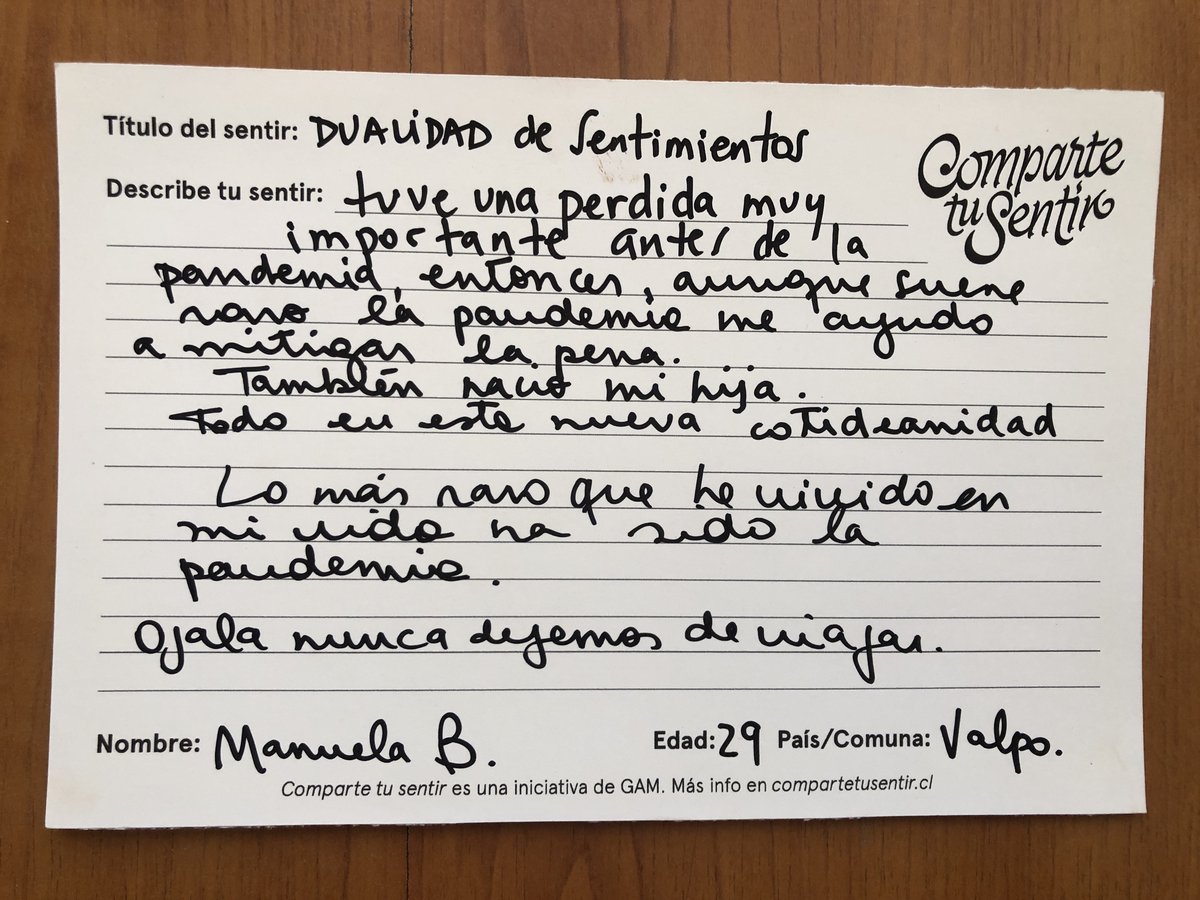 Título del sentir: DUALIDAD de Sentimientos
Comparte
tu Sentir
Describe tu sentir: tuve una perdida muy
importante antes de la
pandemia, entonces, aunque suene
raro la pandemia me ayudo
a mitigar la pena.
También nació mi hija.
Todo en esta nueva cotideanidad
Lo más raro que he vivido en
mi vida ha sido la
pandemia.
Ojala nunca dejemos de viajar.
Nombre: Manuela B. Edad: 29 País/Comuna: Valpo.
Comparte tu sentir es una iniciativa de GAM. Más info en compartetusentir.cl